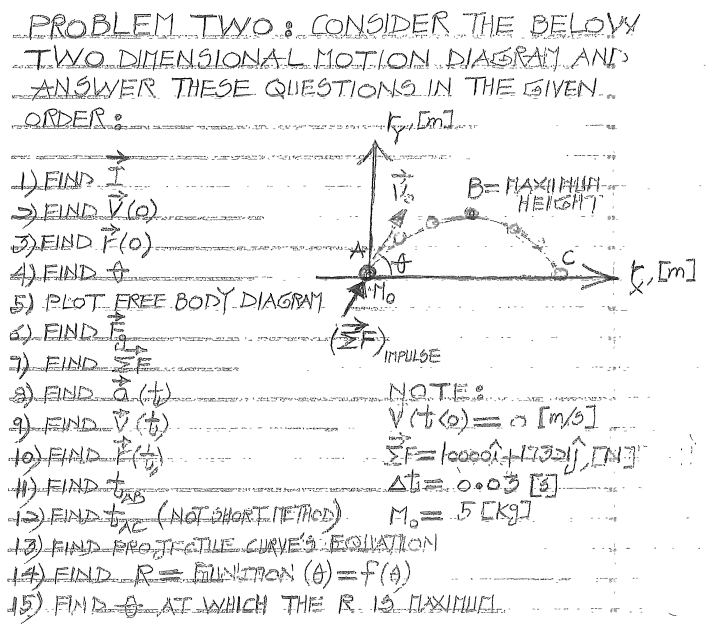 PROBLEM TWO: CONSIDER THE BELOW
TWO DIMENSIONAL MOTION DIAGRAM AND
ANSWER THESE QUESTIONS IN THE GIVEN
ORDER:
1) FIND I⃗
2) FIND V⃗(0)
3) FIND r⃗(0)
4) FIND θ
5) PLOT FREE BODY DIAGRAM
6) FIND F⃗g
7) FIND ΣF⃗
8) FIND a⃗(t)
9) FIND V⃗(t)
10) FIND r⃗(t)
11) FIND t_AB
12) FIND t_AC (NOT SHORT METHOD)
13) FIND PROJECTILE CURVE'S EQUATION
14) FIND R = FUNCTION (θ) = f(θ)
15) FIND θ AT WHICH THE R IS MAXIMUM
r_y, [m]
V⃗₀
B = MAXIMUM
HEIGHT
A
θ
C
r_x, [m]
M₀
(ΣF⃗)IMPULSE
NOTE:
V(t<0) = 0 [m/s]
ΣF⃗ = 10000î + 17321ĵ, [N]
Δt = 0.03 [s]
M₀ = 5 [Kg]